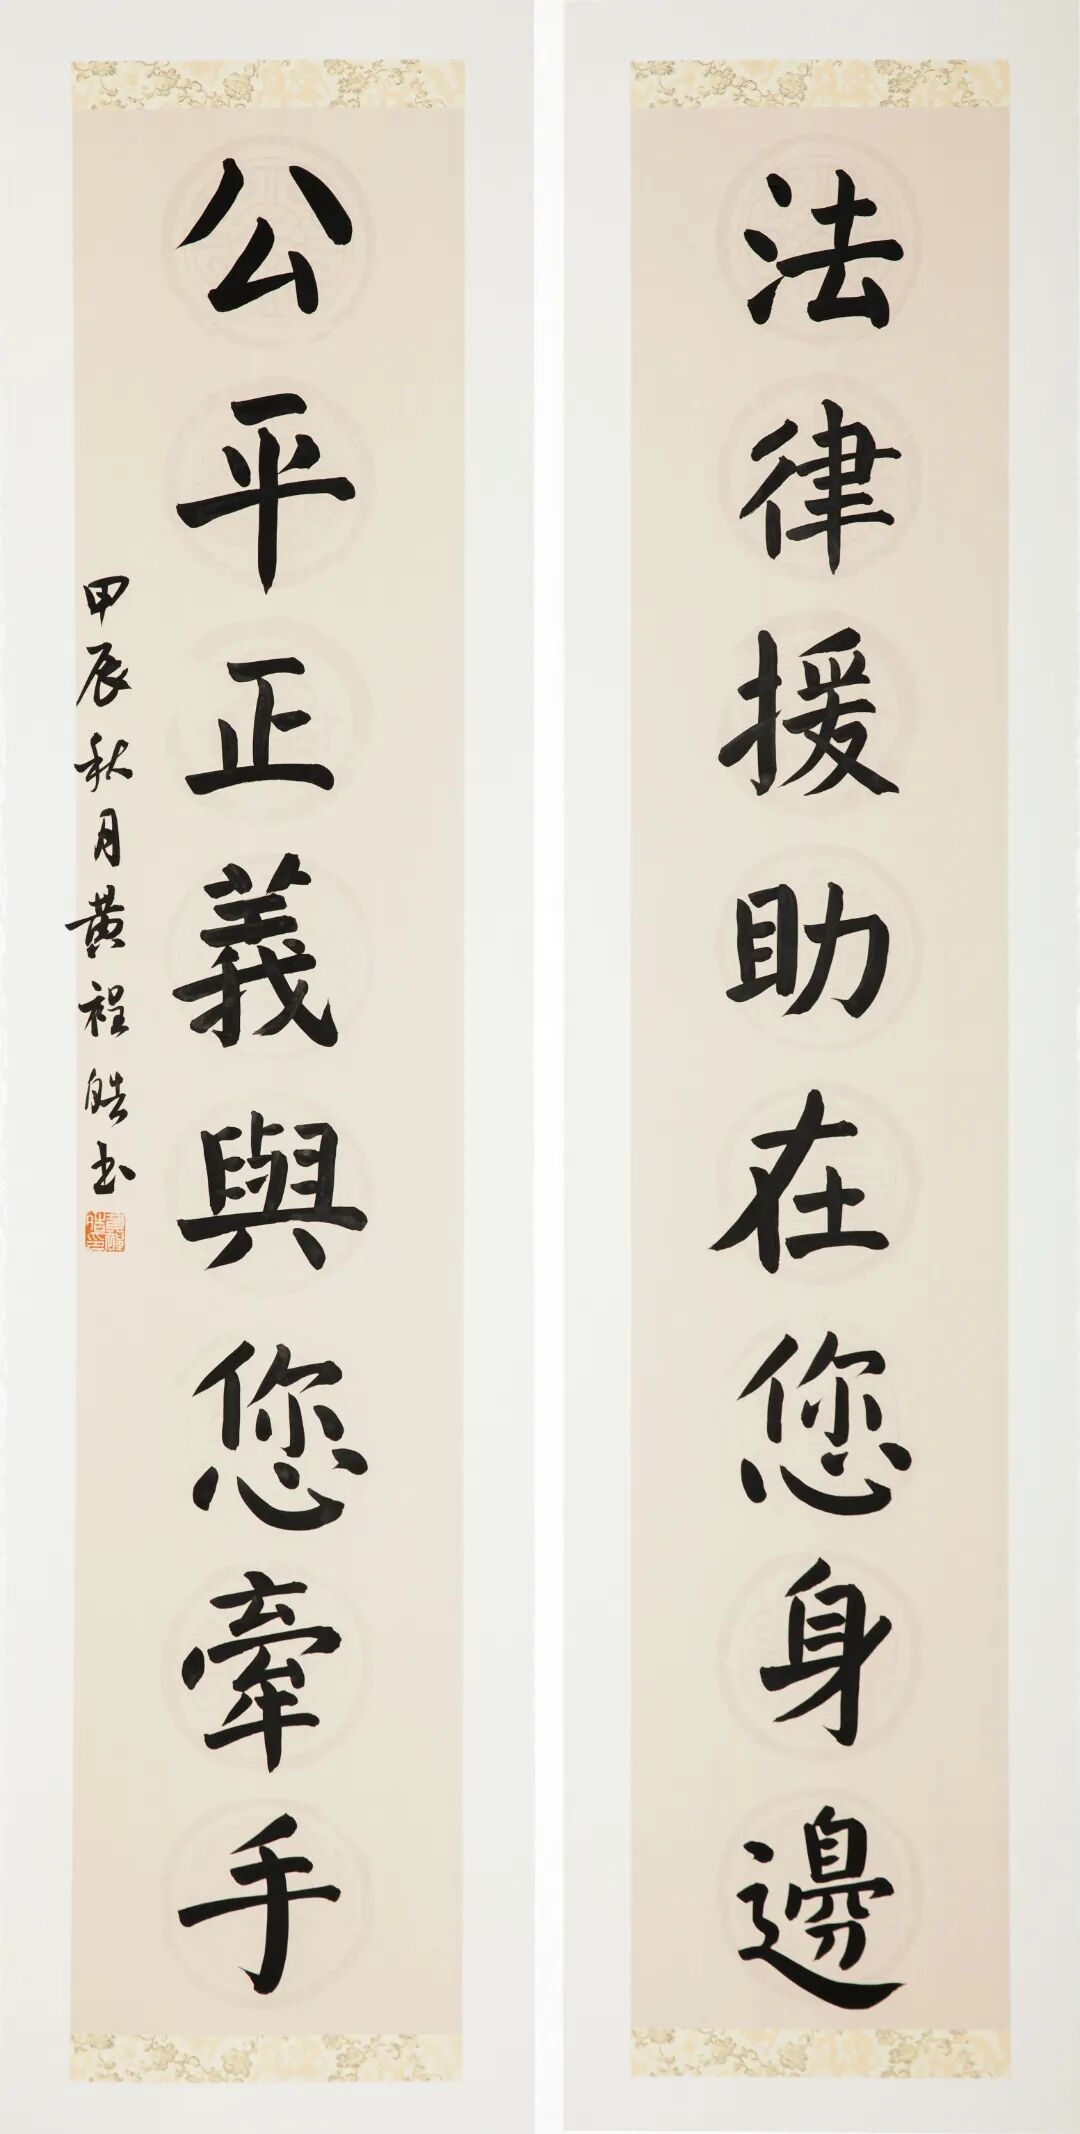 法律援助在您身邊
公平正義與您牽手
甲辰秋月黄程皓书